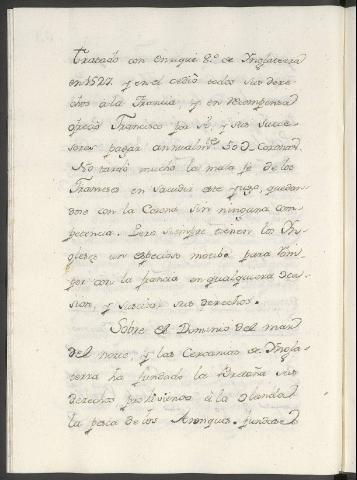 Tratado con Enrique 8.º de Ynglaterra
en 1527. y en el cedió todos sus dere-
chos a la Francia, y en recompensa
ofreció Francisco por sí, y sus succe-
sores pagar annualm.te 50 d. Coronas.
No tardó mucho la mala fé de los
Franceses en sacudir este yugo, quedan-
dose con la Corona sin ninguna com-
petencia. Pero siempre tienen los Yn-
gleses un especioso motibo para rom-
per con la francia en qualquiera oca-
sion, y suscitar sus derechos.
Sobre el Dominio del mar
del norte, y las Cercanias de Yngla-
terra ha fundado la Bretaña sus
derechos prohiviendo á la Olanda
la pesca de los Arenques. fundase